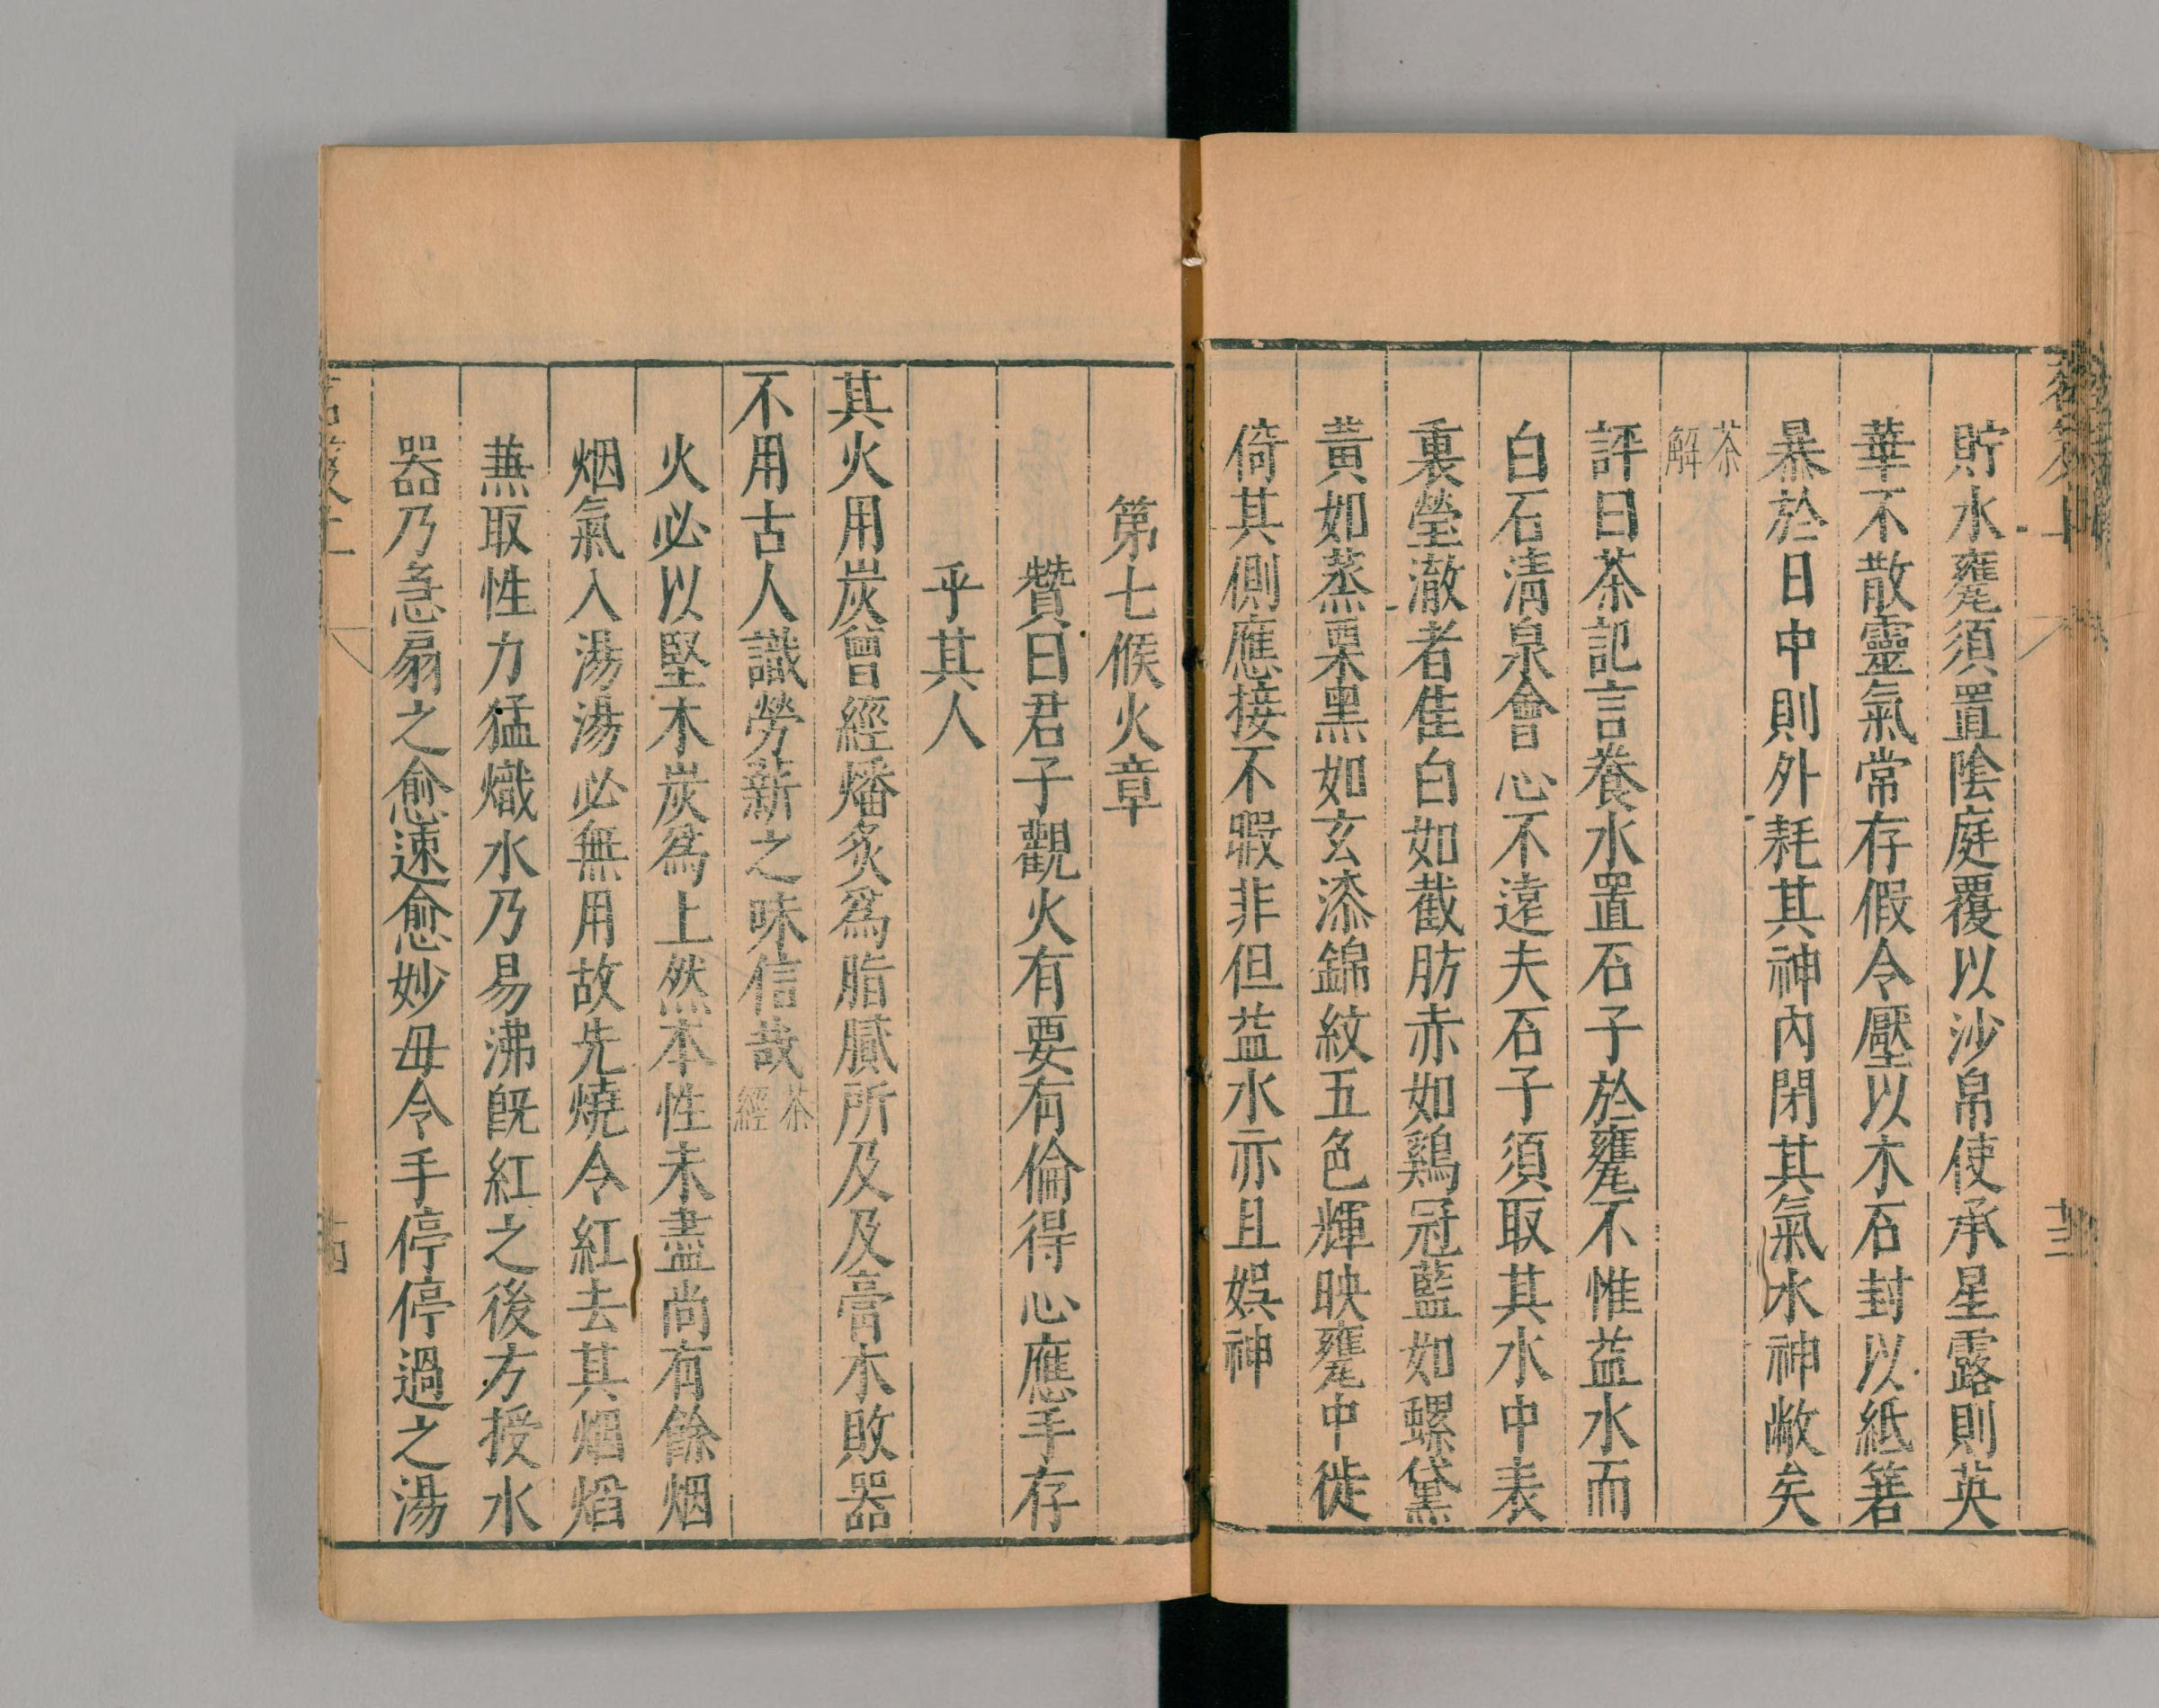 貯水甕須置陰庭覆以沙帛使承星露則英
華不散靈氣常存假令壓以木石封以紙箬
暴於日中則外耗其神內閉其氣水神敝矣
茶解
評曰茶記言養水置石子於甕不惟益水而
白石清泉會心不遠夫石子須取其水中表
裏瑩澈者佳白如截肪赤如鷄冠藍如螺黛
黃如蒸栗黑如玄漆錦紋五色輝映甕中徙
倚其側應接不暇非但益水亦且娛神
第七候火章
贊曰君子觀火有要有倫得心應手存
乎其人
其火用炭曾經燔炙爲脂膩所及及膏木敗器
不用古人識勞薪之味信哉茶經
火必以堅木炭爲上然本性未盡尚有餘烟
烟氣入湯湯必無用故先燒令紅去其烟焰
蕪取性力猛熾水乃易沸旣紅之後方授水
器乃急扇之愈速愈妙毋令手停停過之湯